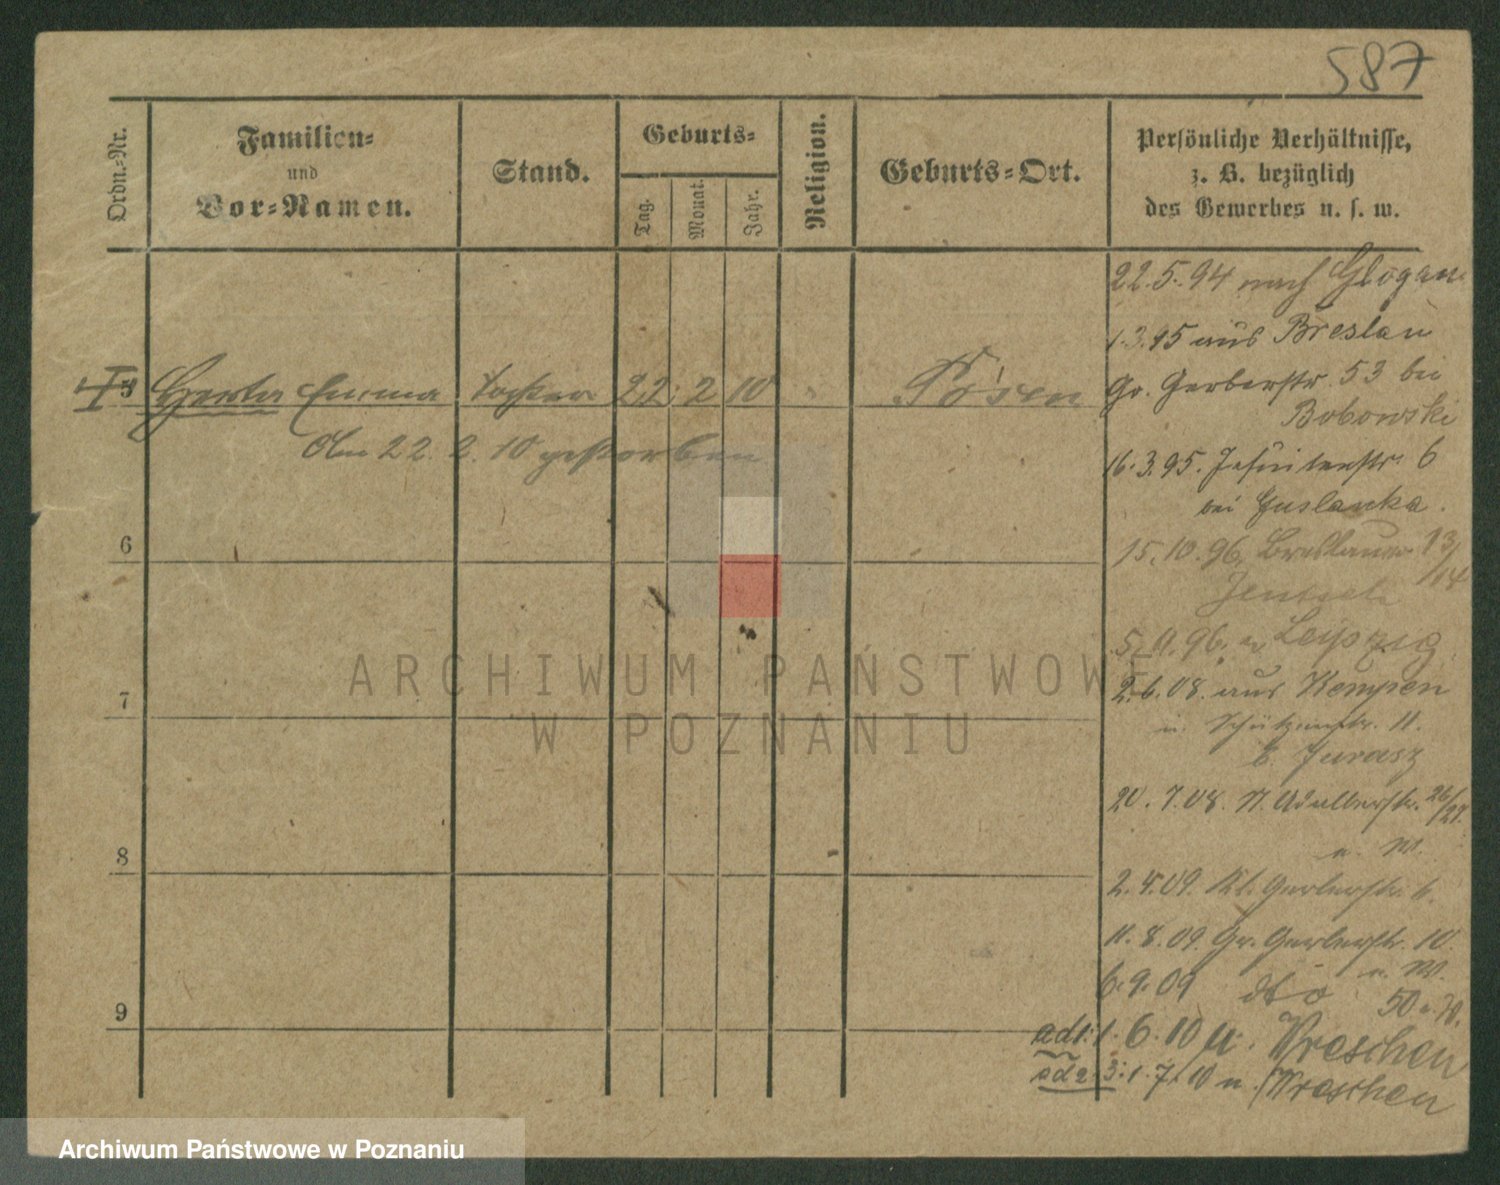 587
Ordn.-Nr.
Familien-
und
Vor-Namen.
Stand.
Geburts-
Tag.
Monat.
Jahr.
Religion.
Geburts-Ort.
Persönliche Verhältnisse,
z. B. bezüglich
des Gewerbes u. s. w.
22.5.94 nach Glogau
1.3.95 aus Breslau
5 Herta Emma Tochter 22 2 10 " Posen
Gr. Gerberstr. 53 bei
Bobowski
Am 22. 2. 10 gestorben
16.3.95. Jesuitenstr. 6
bei
6
15.10.96. Breslauer 13/14
Jentsch
5.11.96. n. Leipzig
7
2.6.08. aus Kempen
n. Schützenstr. 11.
b. Jurasz
20.7.08. St. Adalbertstr. 26/27.
8
2.4.09. Kl. Gerberstr. 6.
11.8.09. Gr. Gerberstr. 10
6.9.09 dto
9
ad 1: 1.6.10 n. Wreschen
ad 2. 3: 1.7.10 n. Wreschen
ARCHIWUM PAŃSTWOWE
W POZNANIU
Archiwum Państwowe w Poznaniu